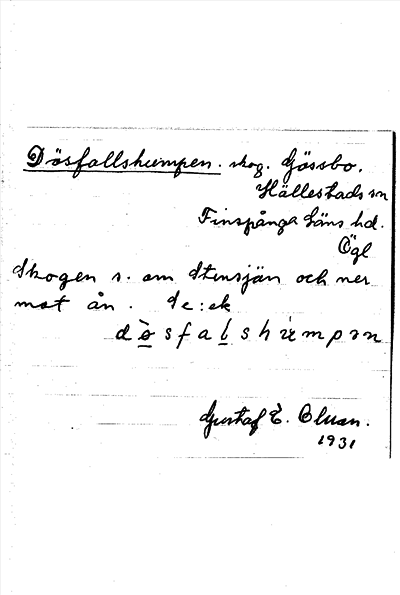 Dösfallshumpen. skog. Gössbo.
Hällestads sn
Finspånga läns hd.
Ögl
Skogen s. om Stensjön och ner
mot ån. Se: ek
dö̀sfalshúmpən
Gustaf E. Olsson.
1931